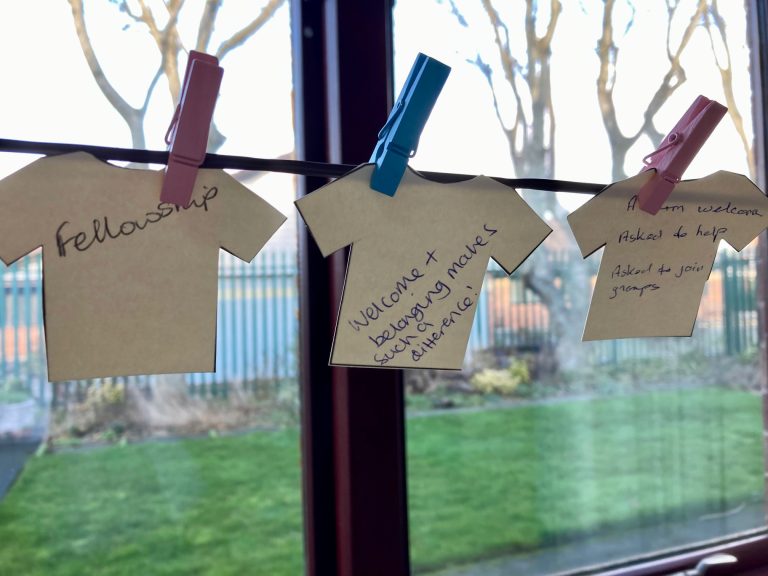 Fellowship
Welcome +
belonging makes
such a
difference!
A warm welcome
Asked to help
Asked to join
groups